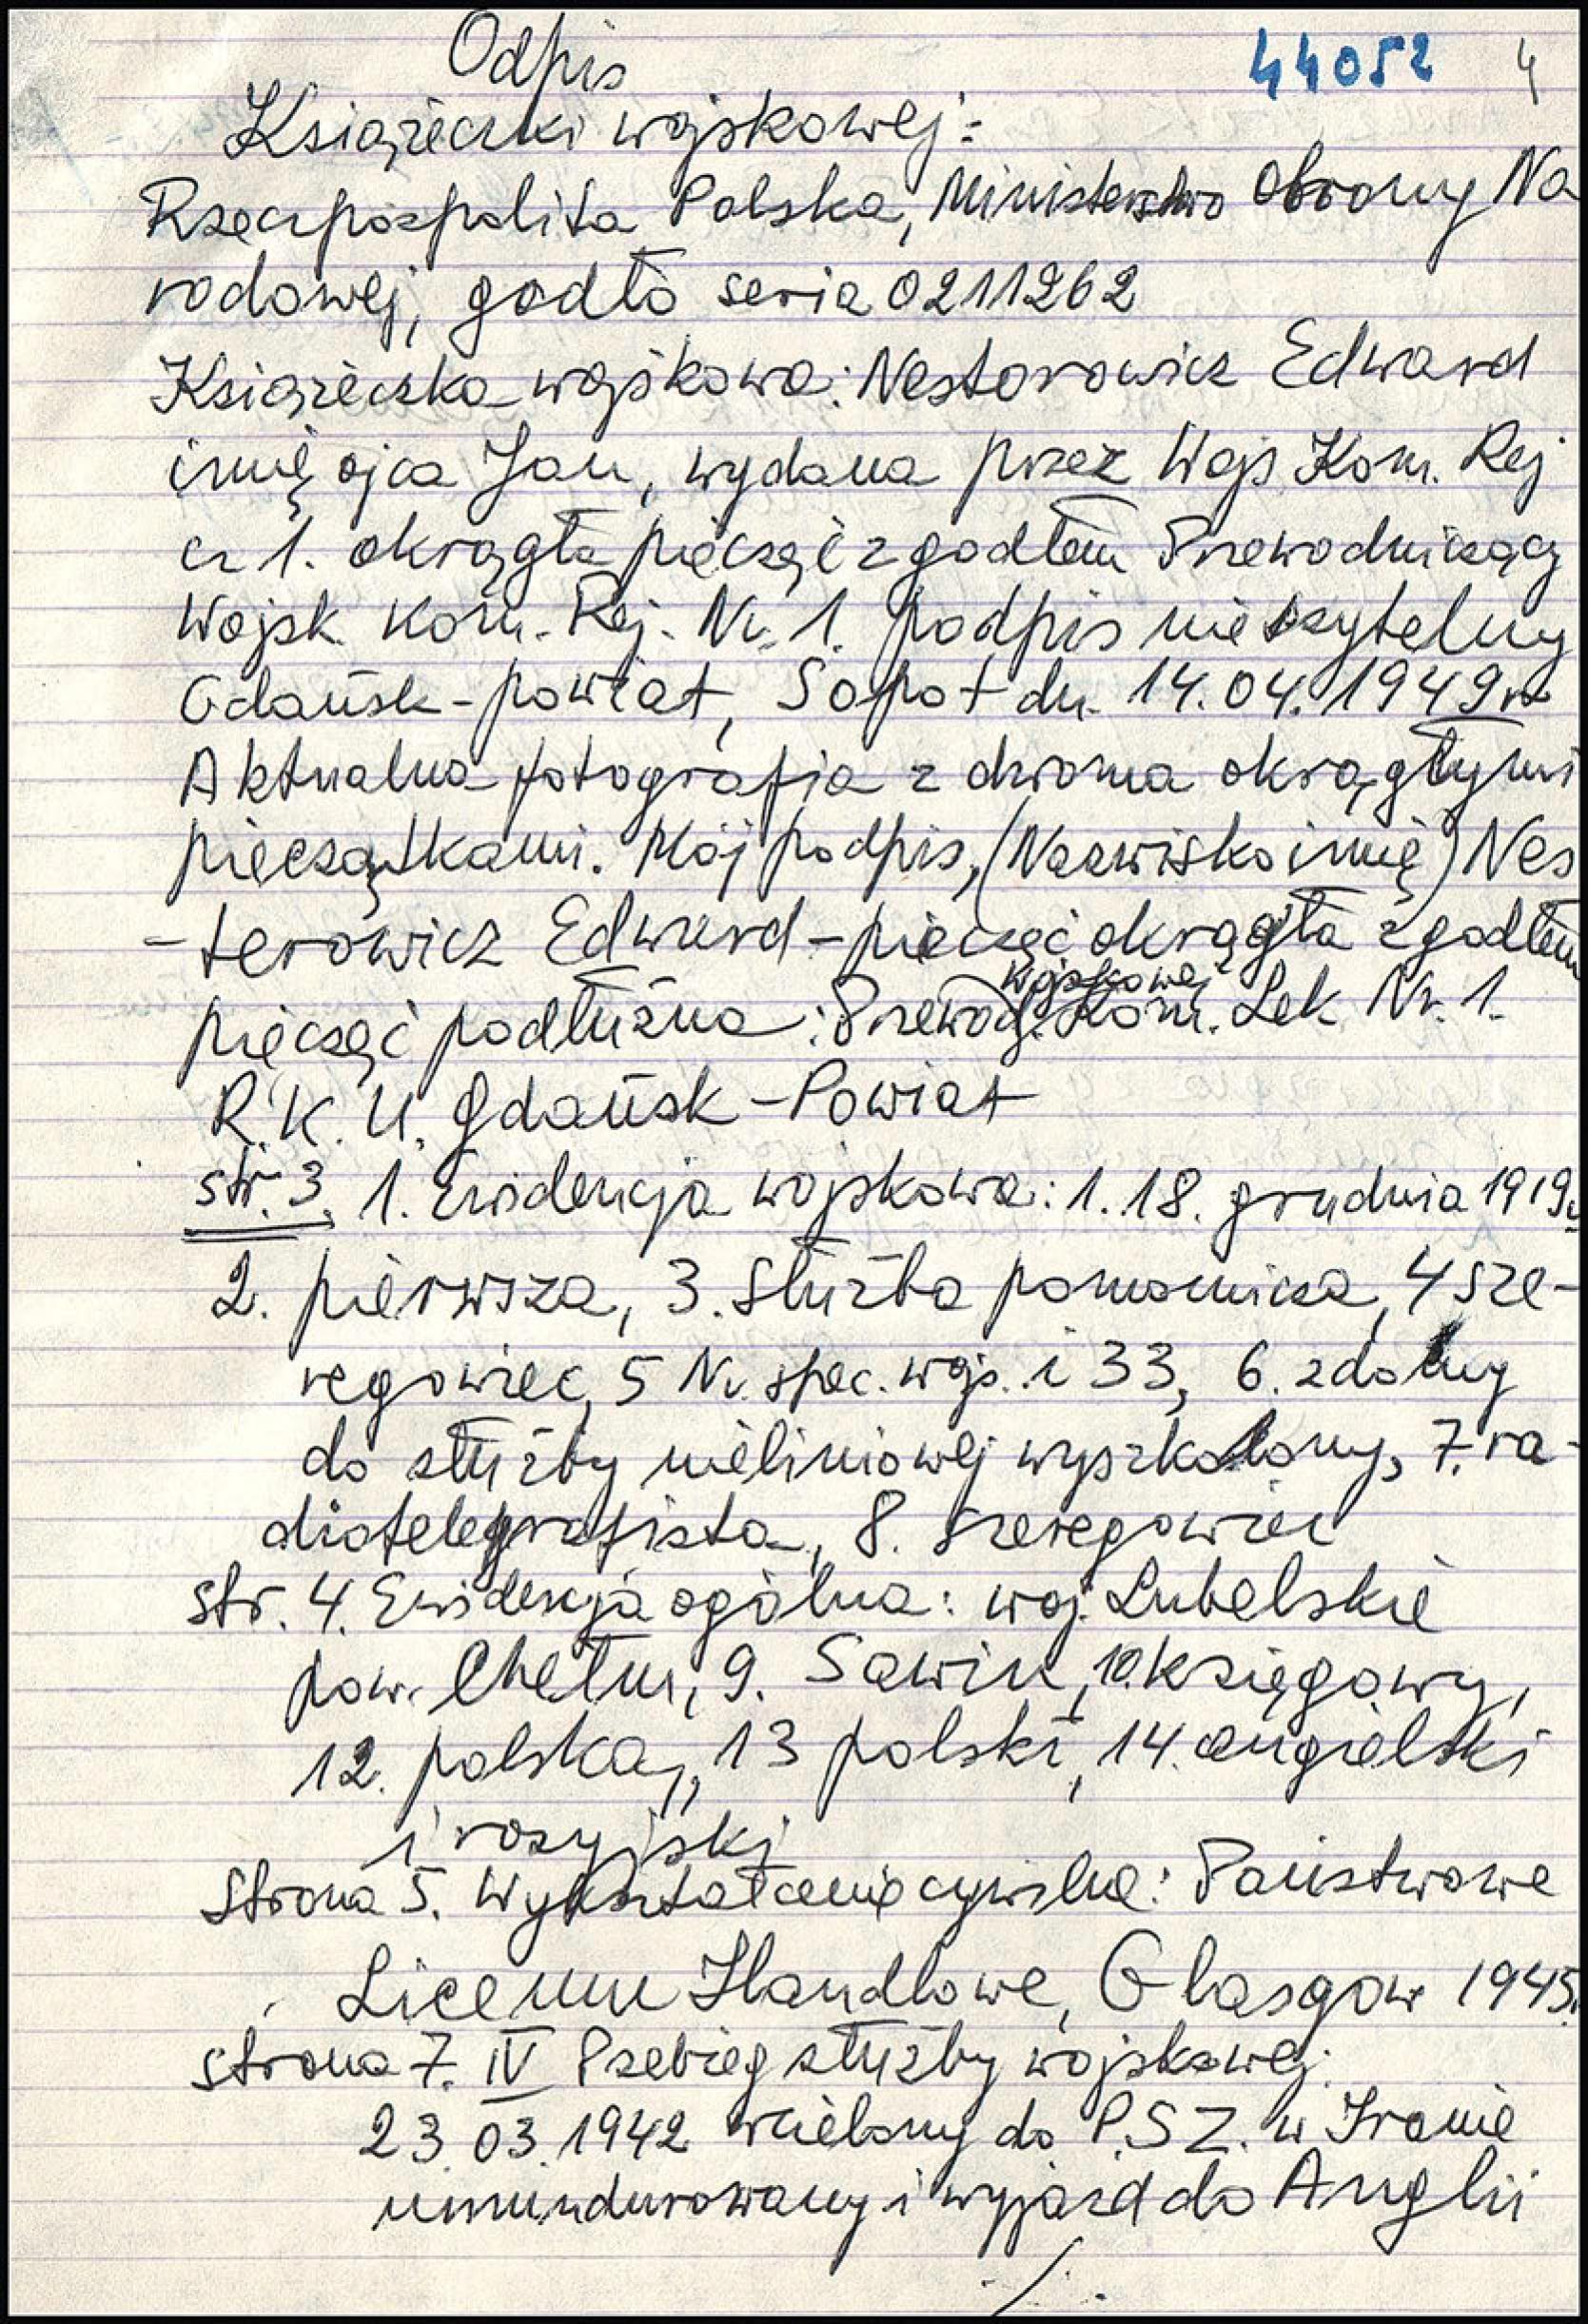 Odpis 44052 4
Książeczki wojskowej:
Rzeczpospolita Polska, Ministerstwo Obrony Na
rodowej, godło seria 0211262
Książeczka wojskowa: Nestorowicz Edward
imię ojca Jan, wydana przez Wojs Kom. Rej
cz 1. okrągła pieczęć z godłem Przewodniczący
Wojsk Kom. Rej. Nr. 1. podpis nieczytelny
Gdańsk-powiat, Sopot dn. 14.04.1949 r
Aktualna fotografia z dwoma okrągłymi
pieczątkami. Mój podpis, (Nazwisko imię) Nes
-terowicz Edward - pieczęć okrągła z godłem
wojskowej
pieczęć podłużna: Przewod. Kom. Lek Nr. 1.
R.K.U. Gdańsk - Powiat
str. 3. 1. Ewidencja wojskowa: 1. 18. grudnia 1919r
2. pierwsza, 3. Służba pomocnicza, 4 sze-
regowiec, 5 Nr. spec. wojs. i 33, 6. zdolny
do służby nieliniowej wyszkolony, 7. ra-
diotelegrafista, 8. szeregowiec
str. 4. Ewidencja ogólna: woj. Lubelskie
pow. Chełm, 9. Sawin, 10. księgowy,
12. polska, 13 polski, 14. angielski
i rosyjski
Strona 5. Wykształcenie cywilne: Państwowe
Liceum Handlowe, Glasgow 1945.
strona 7. IV Przebieg służby wojskowej:
23.03.1942 wcielony do P.S.Z. w Iranie
umundurowany i wyjazd do Anglii
./.